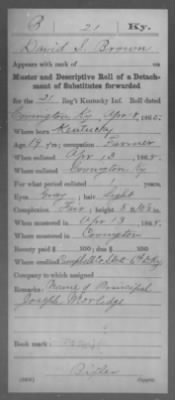 B 21 Ky.
David S. Brown
Appears with mark of
Muster and Descriptive Roll of a Detach-
ment of Substitutes forwarded
for the 21 Reg't Kentucky Inf. Roll dated
Covington Ky Apr 8, 1865.
Where born Kentucky
Age 19 y'rs; occupation Farmer
When enlisted Apr 3, 1865.
Where enlisted Covington Ky
For what period enlisted 1 years.
Eyes Gray; hair Light
Complexion Fair; height 5 ft. in.
When mustered in Apr 3, 1865.
Where mustered in Covington
Bounty paid $ 100; due $ 100
Where credited Campbell Co 6th Ky
Company to which assigned
Remarks: Name of Principal
Joseph
Book mark: